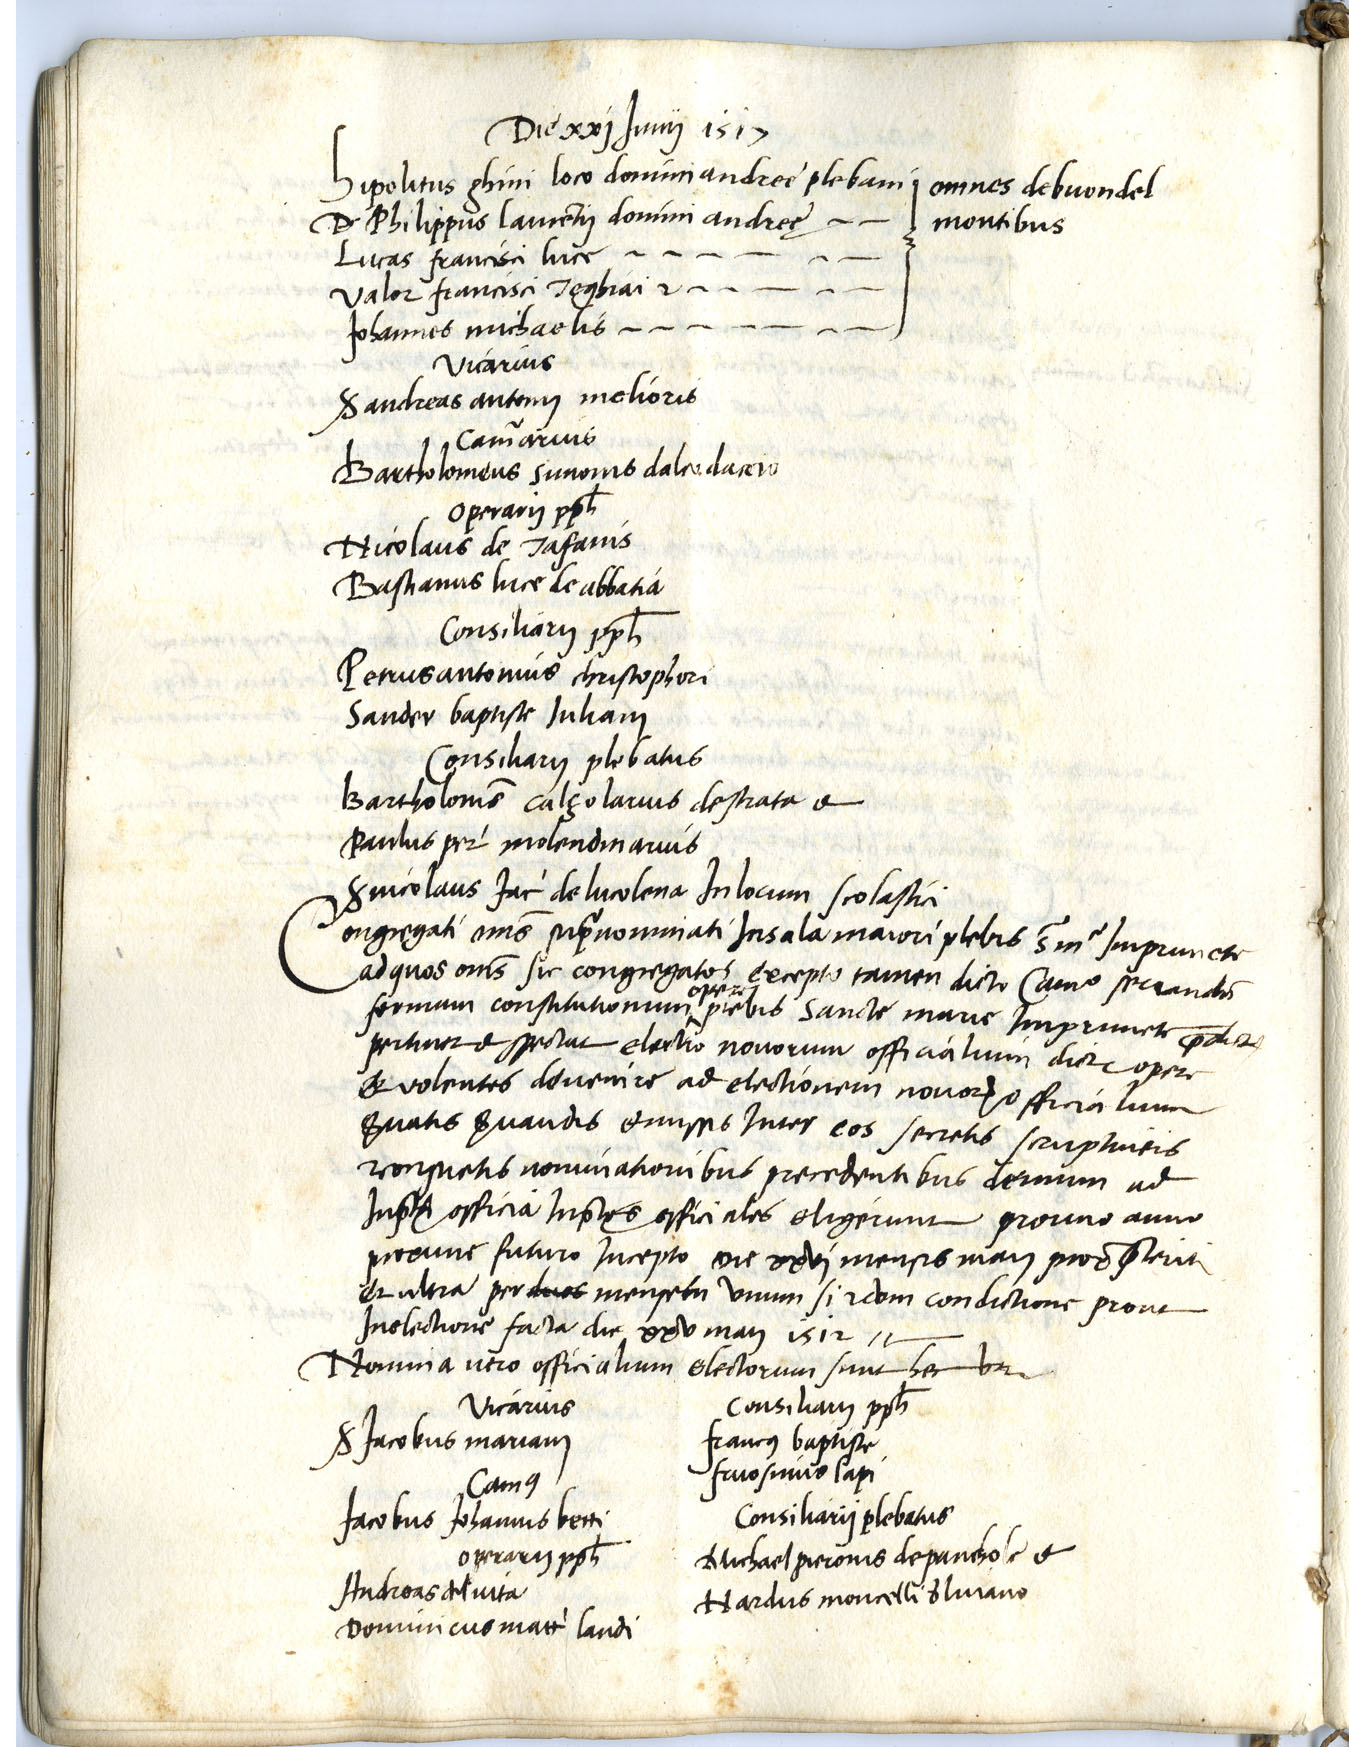 Die xxj Junij 1517
Hipolitus ghini loco domini andree plebani omnes de buondel
D Philippus laurentij domini andree montibus
Lucas francisci luce
Valor francisci
Johannes michaelis
Vicarius
S andreas antonij melioris
Camrarius
Bartholomeus simonis dal
Operarij pph
Nicolaus de Tafanis
Bastianus luce de abbatia
Consiliarij pph
Petrus antonius christophori
Sander baptiste Juliani
Consiliarij plebatus
Bartholoms calzolarius de strata &
Paulus peri molendinarius
S nicolaus Jac de lucolena In locum scolastici
Congregati oms supranominati In sala maiori plebis S m Imprunete
ad quos oms sic congregatos excepto tamen dicto Camo secundu
formam constitutionum opere plebis Sancte marie Imprunete
pertinet & spectat electio novorum officialium dicte opere
& volentes devenire ad electionem novor officialium
Svatis Svandis & missis Inter eos secretis scruptineis
& consuetis nominationibus precedentibus demum ad
officia officiales eligerunt pro uno anno
proxime futuro Incepto die xxvj mensis maij prox preteriti
& ultra per duos mensem unum si & cum condictione prout
In electione facta die xxv maij 1512
Nomina vero officialium electorum sunt hec
Vicarius
S Jacobus mariani
Cam
Jacobus Johannis betti
operarij pph
Andreas del vita
Dominicus matt landi
Consiliarij pph
francus baptiste
fruosinus lapi
Consiliarij plebatus
Michael pieronis de &
Nardus moncelli